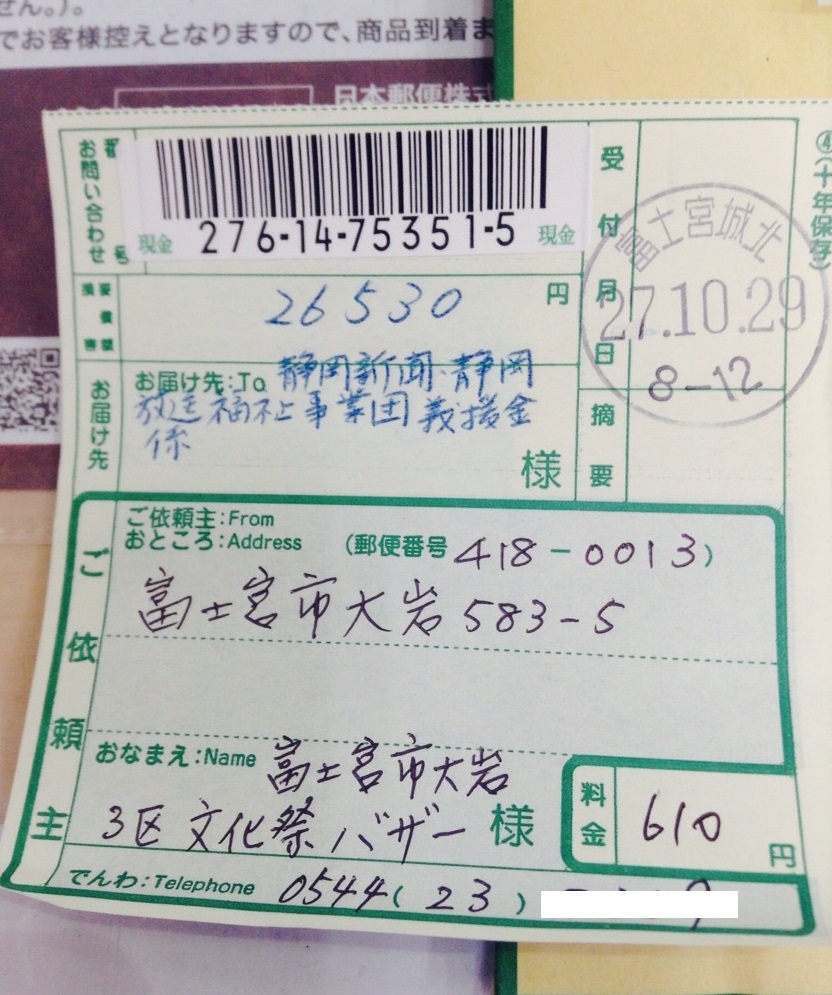 せん。)。
でお客様控えとなりますので、商品到着ま
日本郵便株式
お問い合わせ
番号
現金 276-14-75351-5 現金
26530 円
お届け先
お届け先:To 静岡新聞・静岡
放送福祉事業団義援金
係
様
受付月日
富士宮城北
27.10.29
8-12
摘要
(十年保存)
ご依頼主
ご依頼主:From
おところ:Address (郵便番号 418-0013)
富士宮市大岩583-5
おなまえ:Name 富士宮市大岩
3区文化祭バザー 様
料金
610 円
でんわ:Telephone 0544(23)